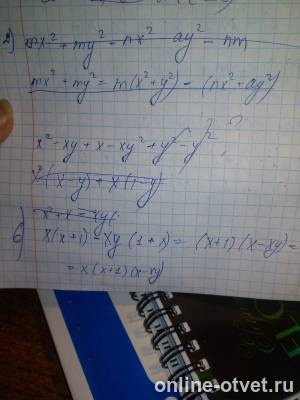 2) mx² + my² - nx² ay² - nm
mx² + my² = m(x² + y²) - (nx² + ay²)
x² - xy + x - xy² + y² - y² ?
x²(x - y) + x(1 - y)
x² + x = xy(
б) x(x+1) - xy(1+x) = (x+1)(x-xy) =
= x(x+1)(x-xy)
online-otvet.ru